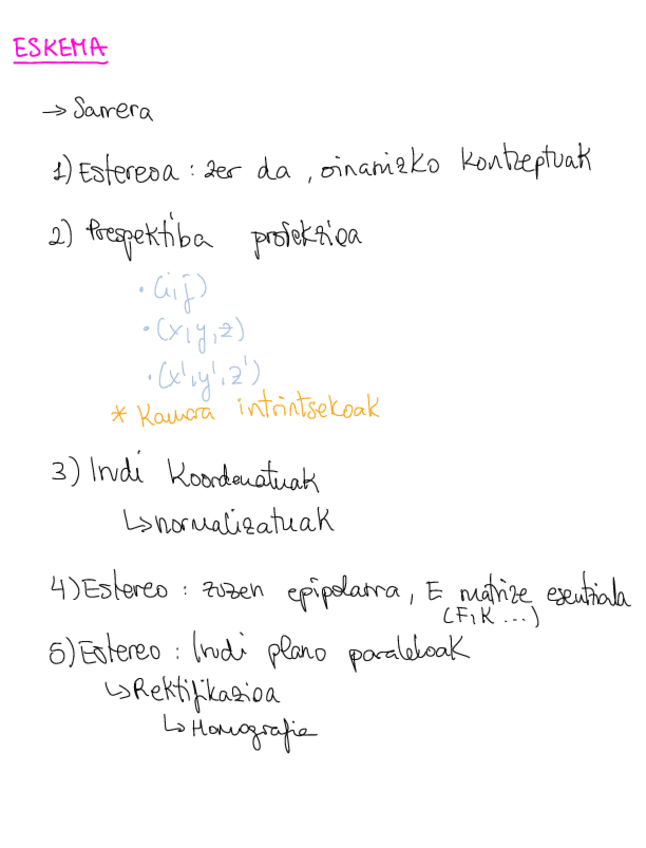 ESKEMA
→ Sarrera
1) Estereoa : zer da , oinarrizko kontzeptuak
2) Prespektiba proiekzioa
• (i,j)
• (x,y,z)
• (x',y',z')
* Kamara intrintsekoak
3) Irudi Koordenatuak
↳ normalizatuak
4) Estereo : zuzen epipolarra, E matrize esentziala
(F,K ...)
5) Estereo : Irudi plano paraleloak
↳ Rektifikazioa
↳ Homografia